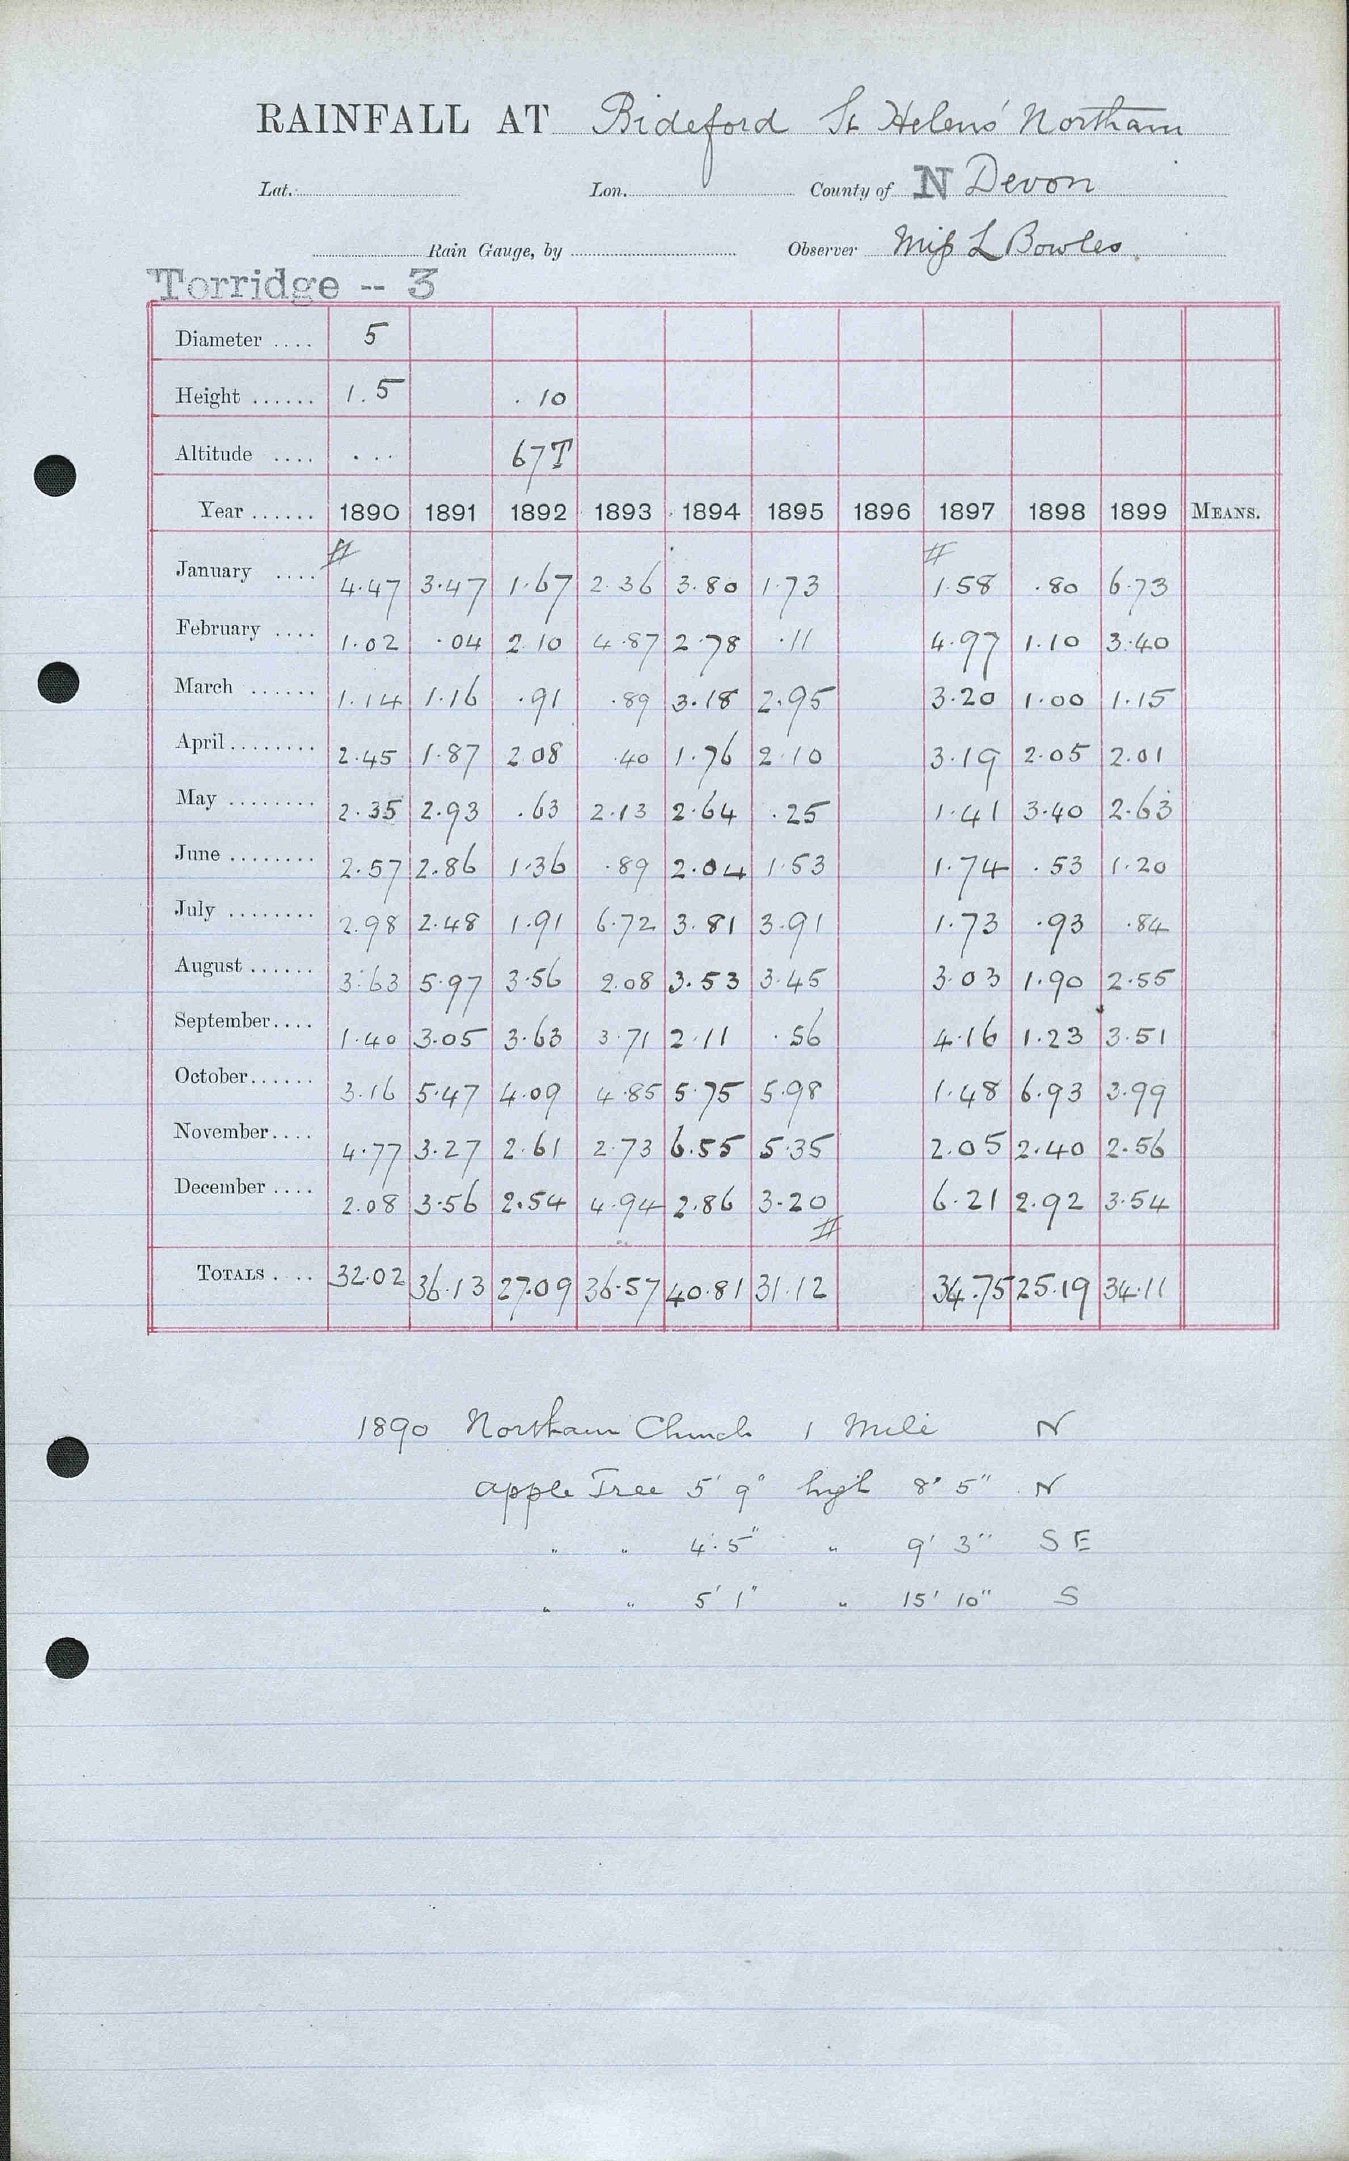 RAINFALL AT Bideford St Helens' Northam
Lat. Lon. County of N Devon
Rain Gauge, by Observer Miss L Bowles.
Torridge -- 3
Diameter .... 5
Height ...... 1.5 .10
Altitude .... ... 67T
Year ...... 1890 1891 1892 1893 1894 1895 1896 1897 1898 1899 MEANS.
# #
January .... 4.47 3.47 1.67 2.36 3.80 1.73 1.58 .80 6.73
February .... 1.02 .04 2.10 4.87 2.78 .11 4.97 1.10 3.40
March ...... 1.14 1.16 .91 .89 3.18 2.95 3.20 1.00 1.15
April ........ 2.45 1.87 2.08 .40 1.76 2.10 3.19 2.05 2.01
May ........ 2.35 2.93 .63 2.13 2.64 .25 1.41 3.40 2.63
June ........ 2.57 2.86 1.36 .89 2.04 1.53 1.74 .53 1.20
July ........ 2.98 2.48 1.91 6.72 3.81 3.91 1.73 .93 .84
August ...... 3.63 5.97 3.56 2.08 3.53 3.45 3.03 1.90 2.55
September.... 1.40 3.05 3.63 3.71 2.11 .56 4.16 1.23 3.51
October...... 3.16 5.47 4.09 4.85 5.75 5.98 1.48 6.93 3.99
November.... 4.77 3.27 2.61 2.73 6.55 5.35 2.05 2.40 2.56
December .... 2.08 3.56 2.54 4.94 2.86 3.20 6.21 2.92 3.54
#
TOTALS .... 32.02 36.13 27.09 36.57 40.81 31.12 34.75 25.19 34.11
1890 Northam Church 1 Mile N
apple Tree 5' 9" high 8' 5" N
" " 4'.5" " 9' 3" S E
" " 5' 1" " 15' 10" S